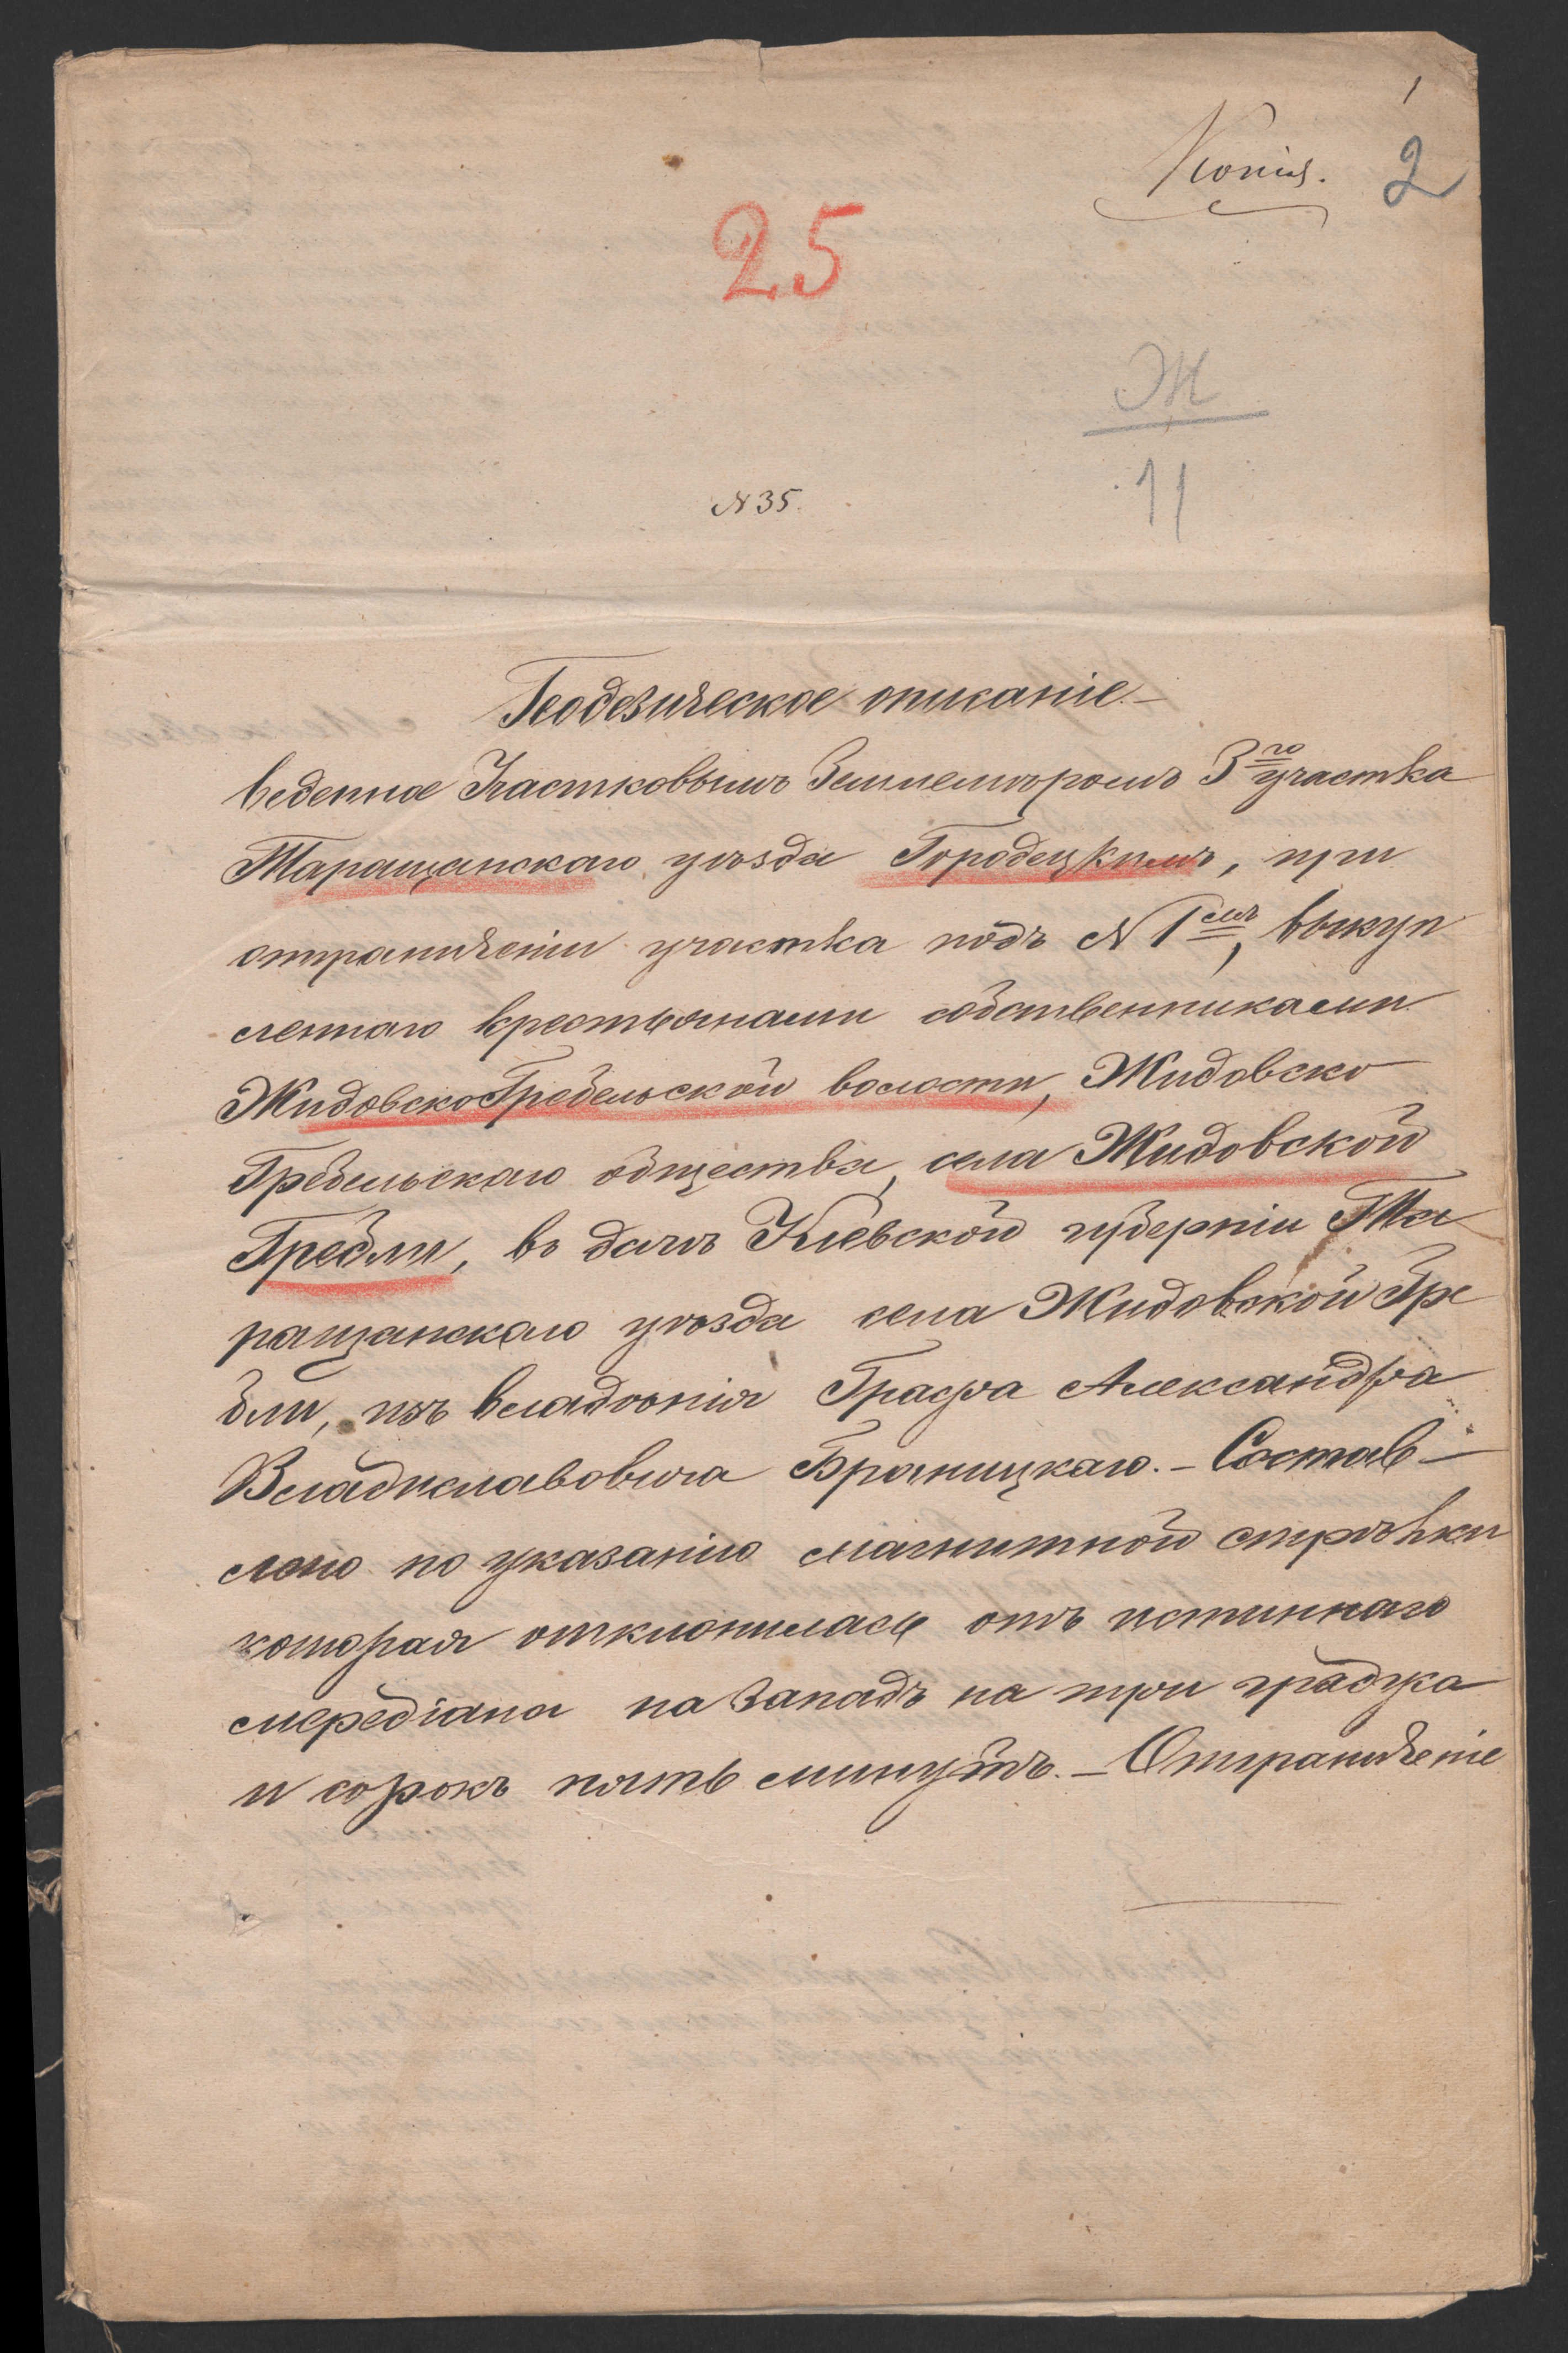 1
Копія.
2
25
Ж
11
№ 35.
Геодезическое описаніе.—
веденное Участковымъ Землемѣромъ 3го участка
Таращанскаго уѣзда Городецкимъ, при
отграниченіи участка подъ № 1мъ, выкуп
леннаго крестьянами собственниками
ЖидовскоГребельской волости, Жидовско
Гребельскаго общества, села Жидовской
Гребли, въ дачѣ Кіевской губерніи Та
ращанскаго уѣзда села Жидовской Гре
бли, изъ владѣнія Графа Александра
Владиславовича Браницкаго. — Состав—
лено по указанію магнитной стрѣлки
которая отклонилась отъ истиннаго
мередіана на Западъ на три градуса
и сорокъ пять минутъ. — Отграниченіе